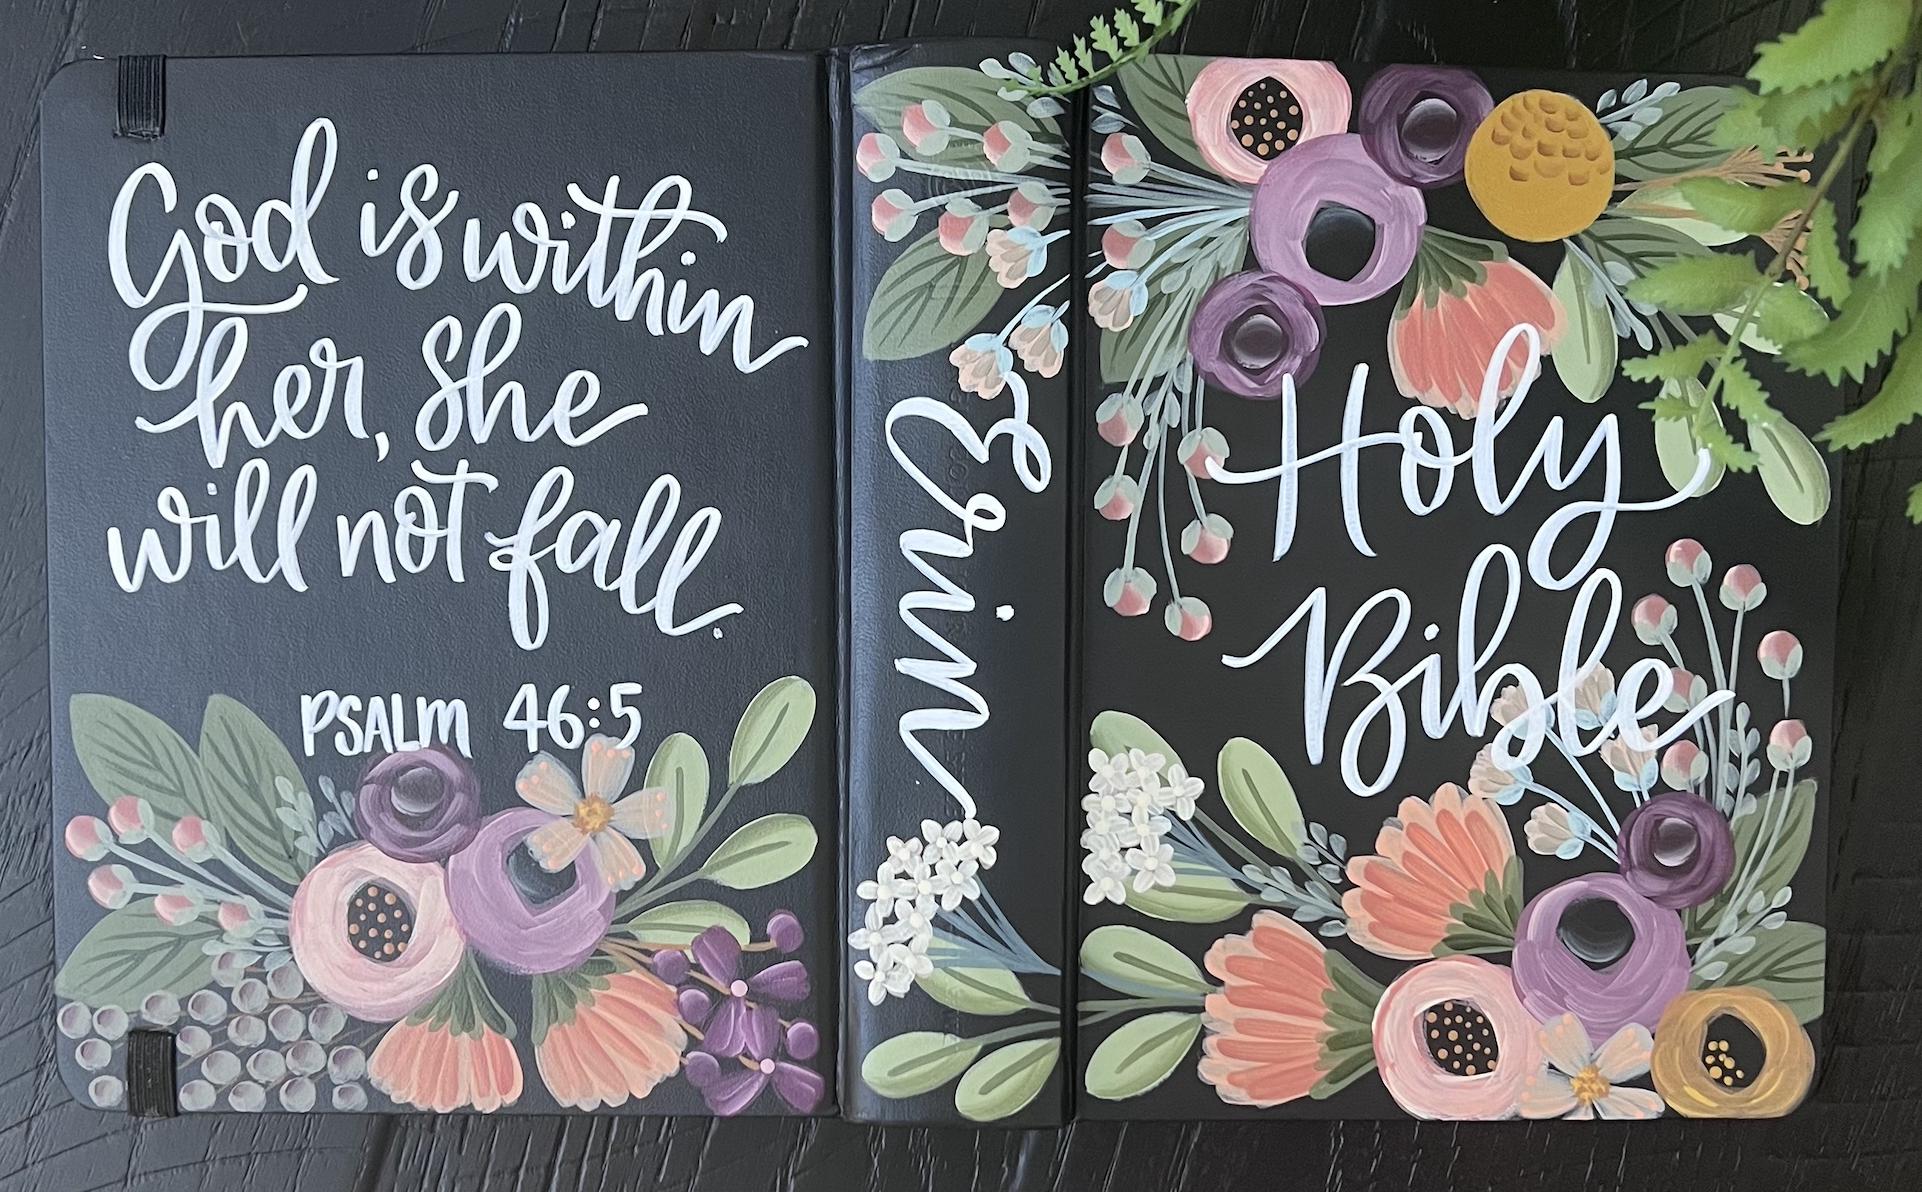 God is within
her, she
will not fall.
PSALM 46:5
Erin
Holy
Bible